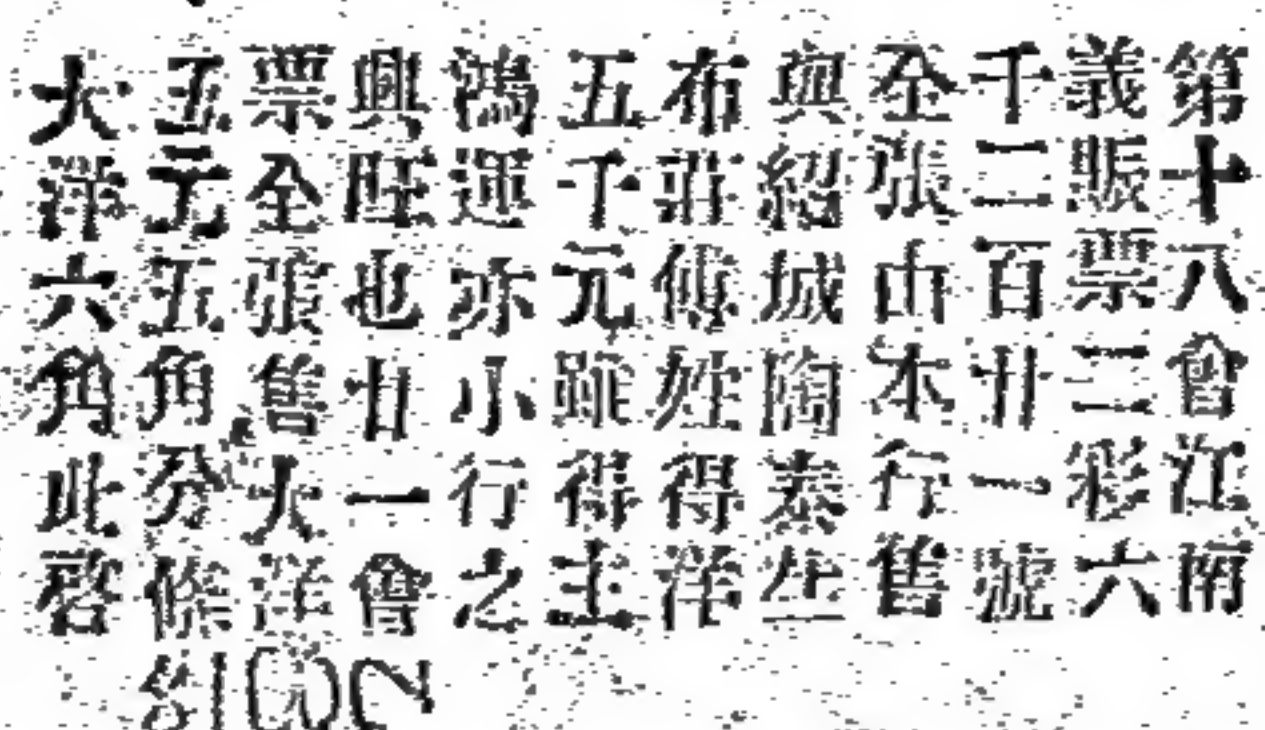 第十八會江南
義賑票二彩六
千二百廿一號
全張由本行售
與紹城陶泰生
布莊傅姓得洋
五千元誠得主
鴻運亦小行之
興旺也廿一會
票全張售大洋
五元五角分條
大洋六角此啓